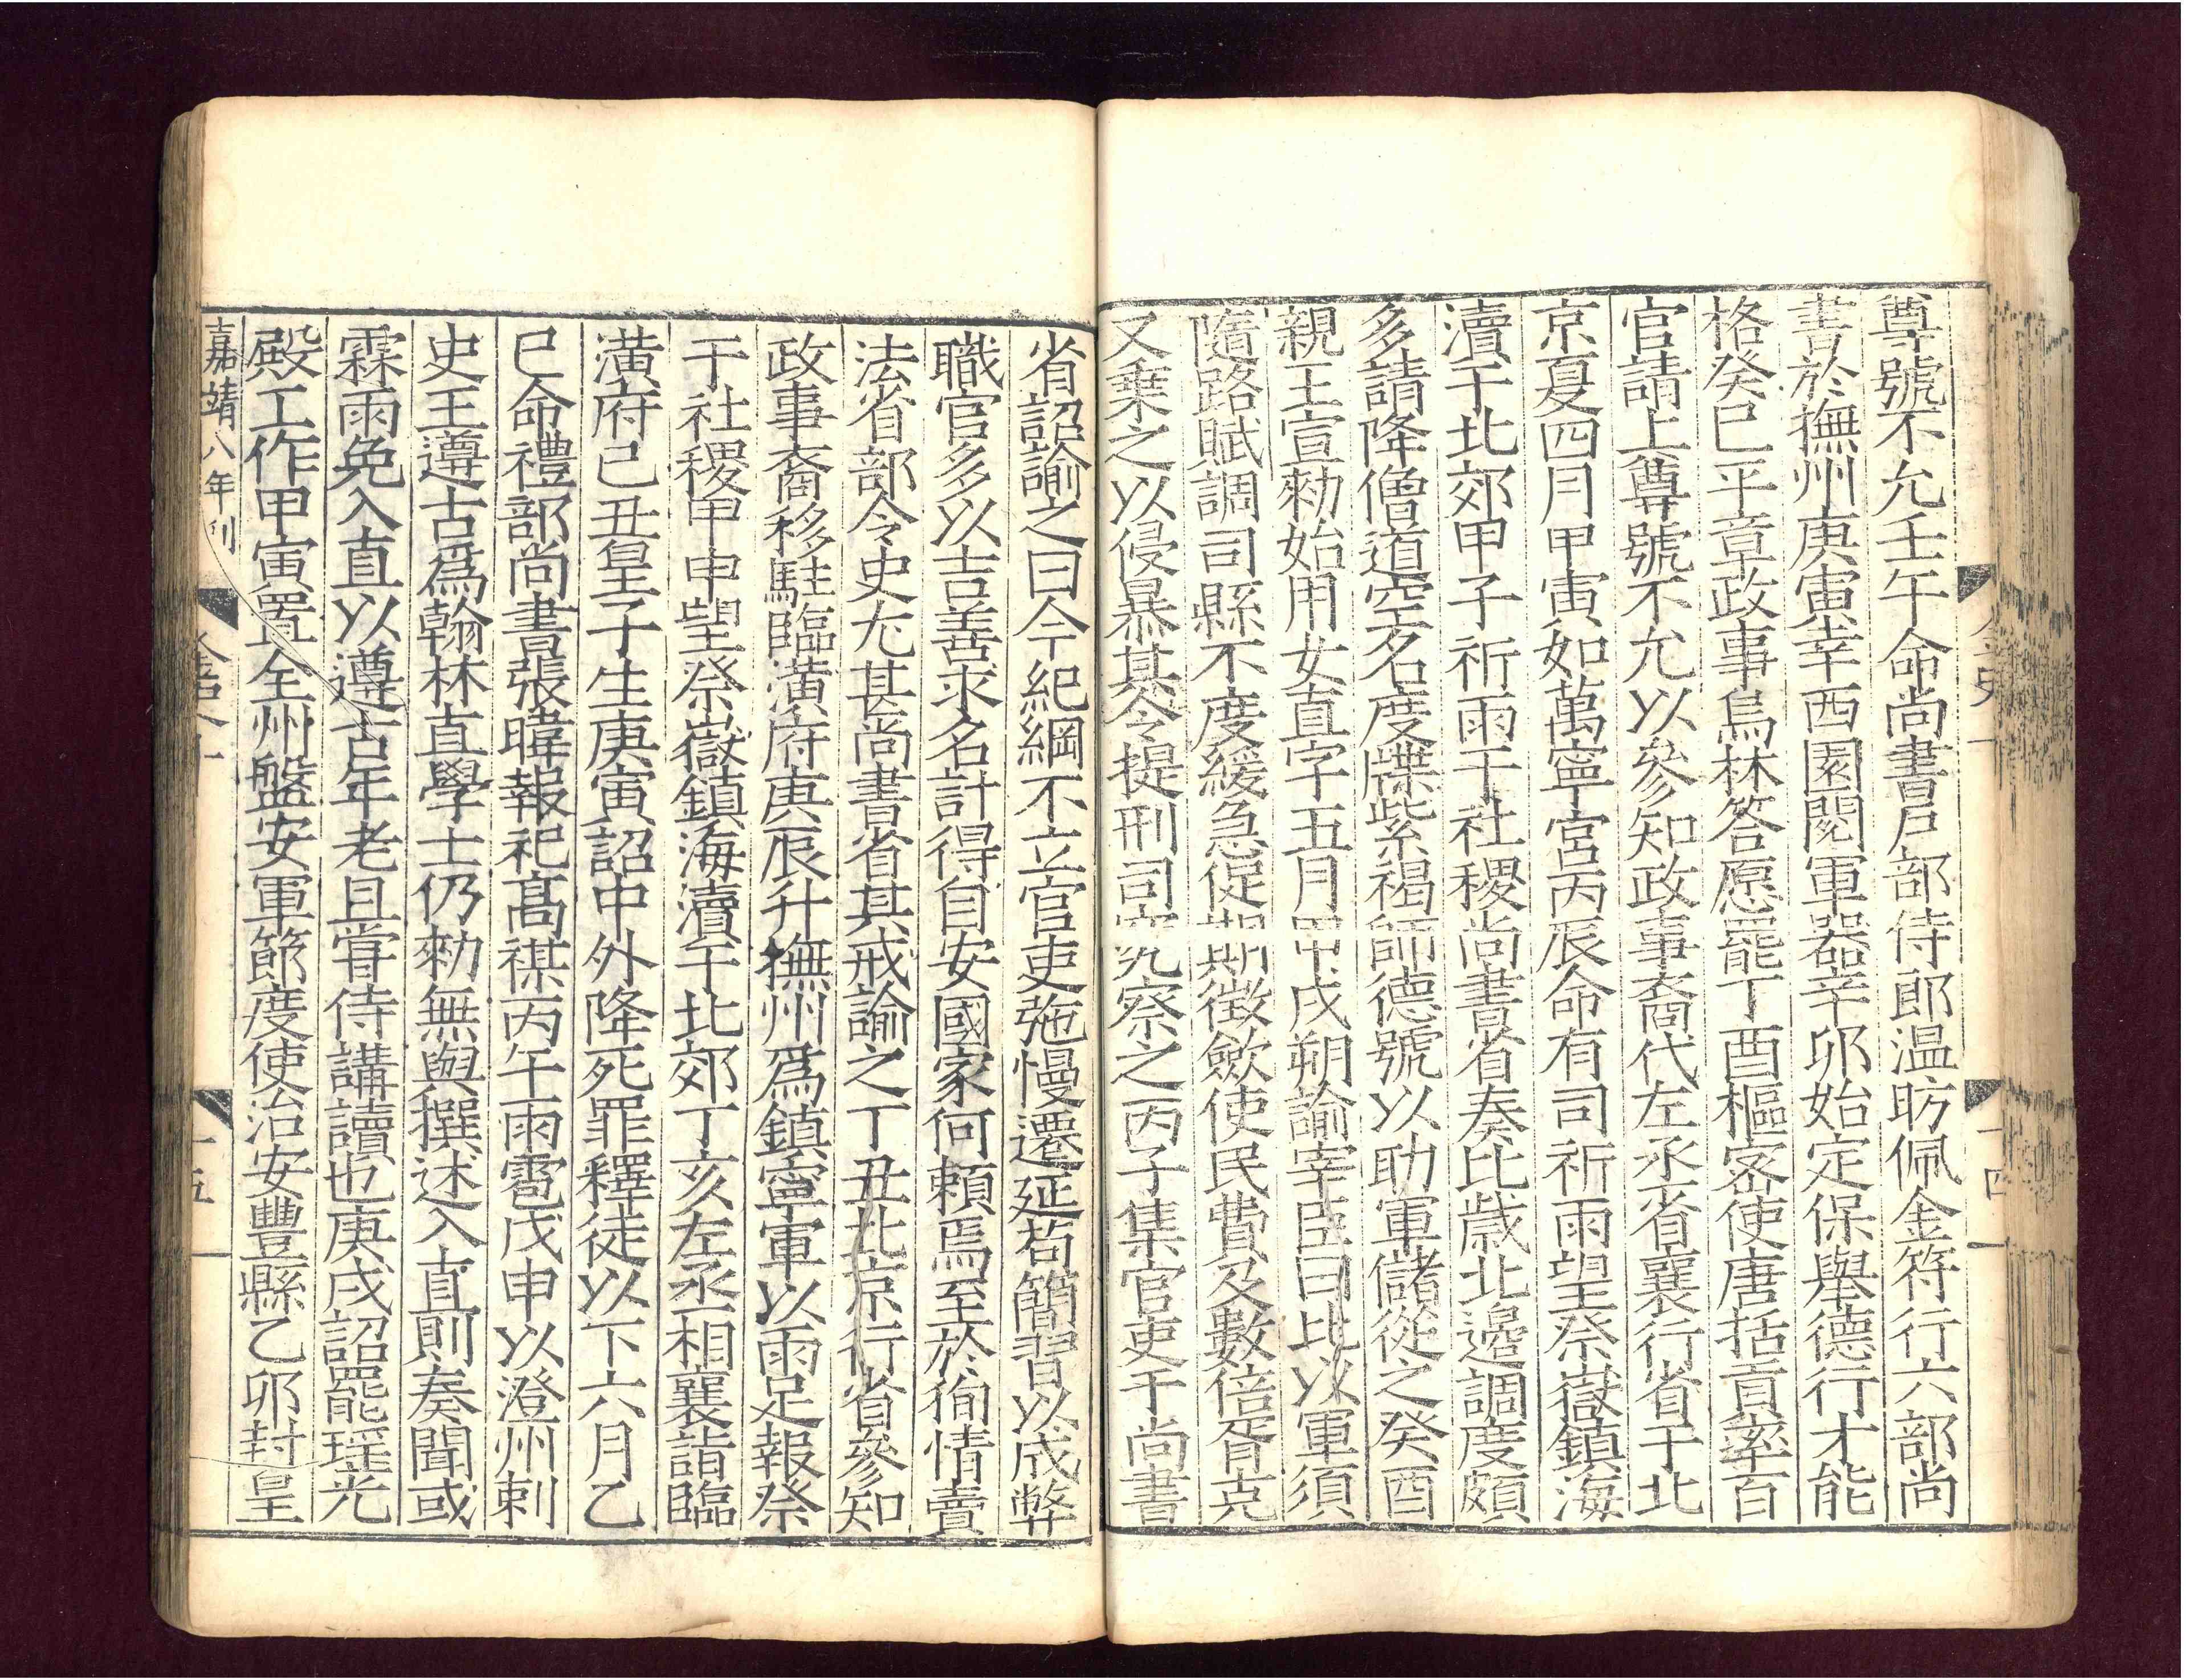 尊號不允壬午命尚書戶部侍郎温昉佩金符行六部尚
書於撫州庚寅幸西園閱軍器辛卯始定保舉德行才能
格癸巳平章政事烏林荅愿罷丁酉樞密使唐括貢率百
官請上尊號不允以參知政事裔代左丞省襄行省于北
京夏四月甲寅如萬寧宮丙辰命有司祈雨望祭嶽鎮海
瀆于北郊甲子祈雨于社稷尚書省奏比歲北邊調度頗
多請降僧道空名度牒紫褐師德號以助軍儲從之癸酉
親王宣勑始用女直字五月甲戌朔諭宰臣曰比以軍須
隨路賦調司縣不度緩急促期徵歛使民費及數倍胥吏
又乗之以侵暴其令提刑司究察之丙子集官吏于尚書
省詔諭之曰今紀綱不立官吏弛慢遷延苟簡習以成弊
職官多以吉善求名計得自安國家何賴焉至於徇情賣
法省部令史尤甚尚書省其戒諭之丁丑北京行省參知
政事裔移駐臨潢府庚辰升撫州爲鎮寧軍以雨足報祭
于社稷甲申望祭嶽鎮海瀆于北郊丁亥左丞相襄詣臨
潢府己丑皇子生庚寅詔中外降死罪釋徒以下六月乙
巳命禮部尚書張暐報祀髙禖丙午雨雹戊申以澄州刺
史王遵古爲翰林直學士仍勑無與撰述入直則奏聞或
霖雨免入直以遵古年老且甞侍講讀也庚戌詔罷瑶光
殿工作甲寅置全州盤安軍節度使治安豐縣乙卯封皇
嘉靖八年刊
十五